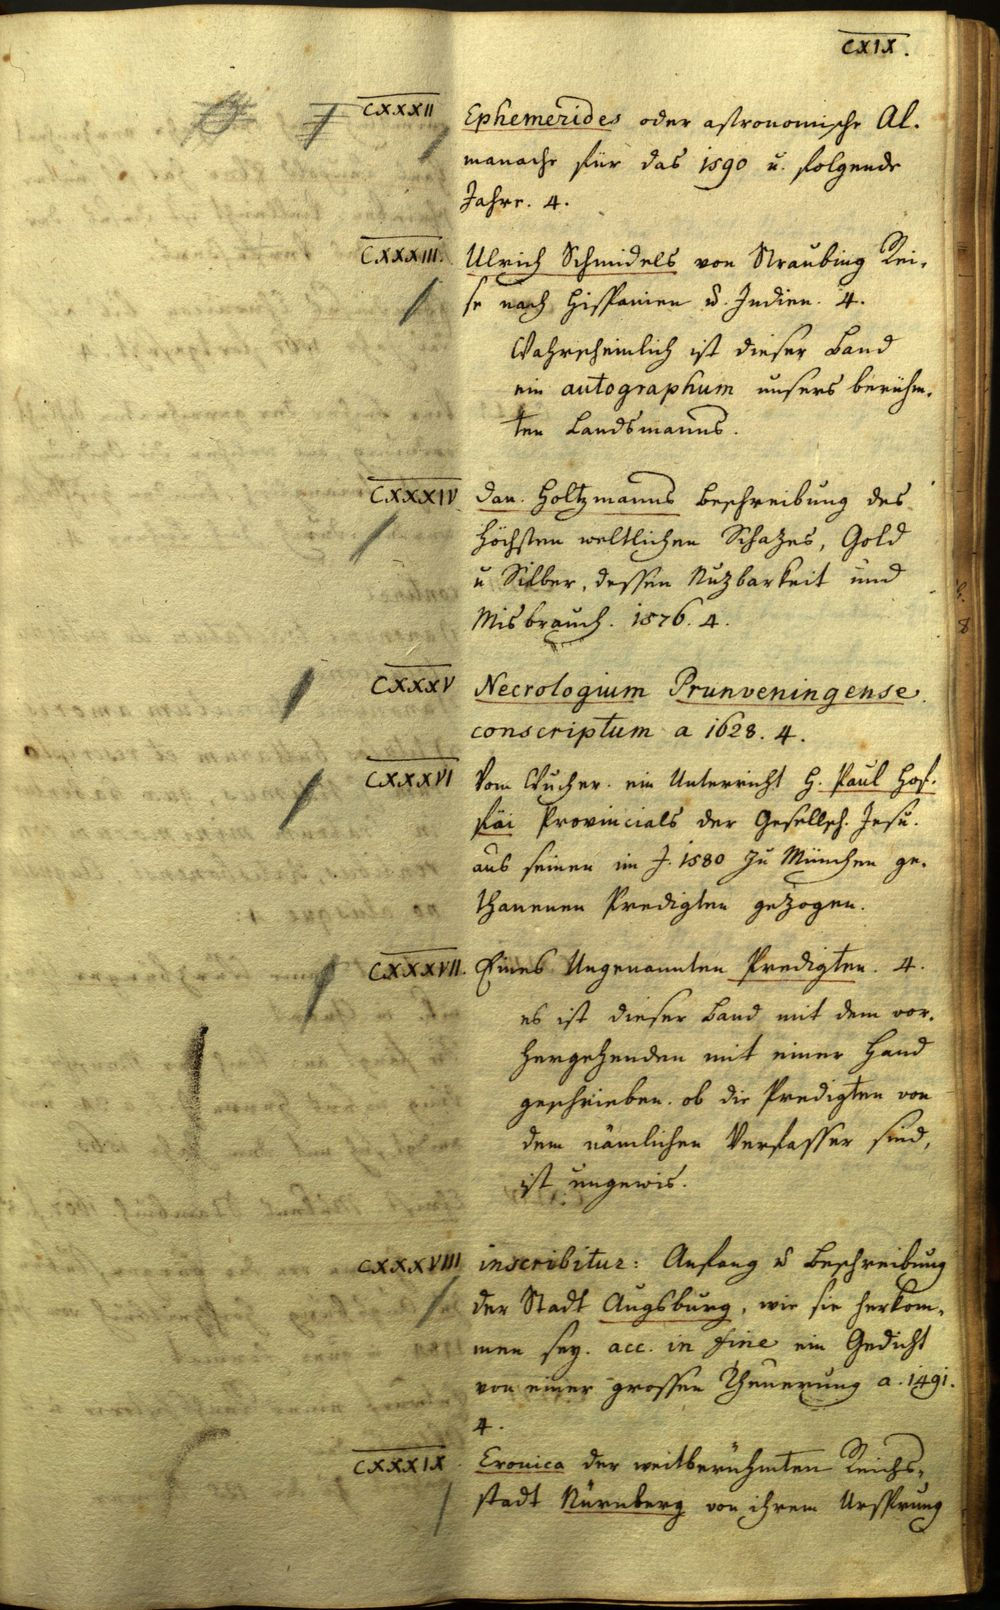 CXIX.
CXXXII Ephemerides oder astronomische Al-
manache für das 1590 u. folgende
Jahre. 4.
CXXXIII. Ulrich Schmidels von Straubing Rei-
se nach Hispanien u. Indien. 4.
Wahrscheinlich ist dieser Band
ein autographum unsers berühm-
ten Landsmanns.
CXXXIV Dan. Holtzmanns Beschreibung des
höchsten weltlichen Schatzes, Gold
u Silber, dessen Nuzbarkeit und
Misbrauch. 1576. 4.
CXXXV Necrologium Prunveningense
conscriptum a 1628. 4.
CXXXVI Vom Wucher. ein Unterricht H. Paul Hof-
fäi Provincials der Gesellsch. Jesu.
aus seinen im J. 1580 zu München ge-
thanenen Predigten gezogen.
CXXXVII. Eines Ungenannten Predigten. 4.
es ist dieser Band mit dem vor-
hergehenden mit einer Hand
geschrieben. ob die Predigten von
dem nämlichen Verfasser sind,
ist ungewis.
CXXXVIII inscribitur: Anfang u Beschreibung
der Stadt Augsburg, wie sie herkom-
men sey. acc. in fine ein Gedicht
von einer grossen Theuerung a. 1491.
4.
CXXXIX. Cronica der weitberühmten Reichs-
stadt Nürnberg von ihrem Ursprung